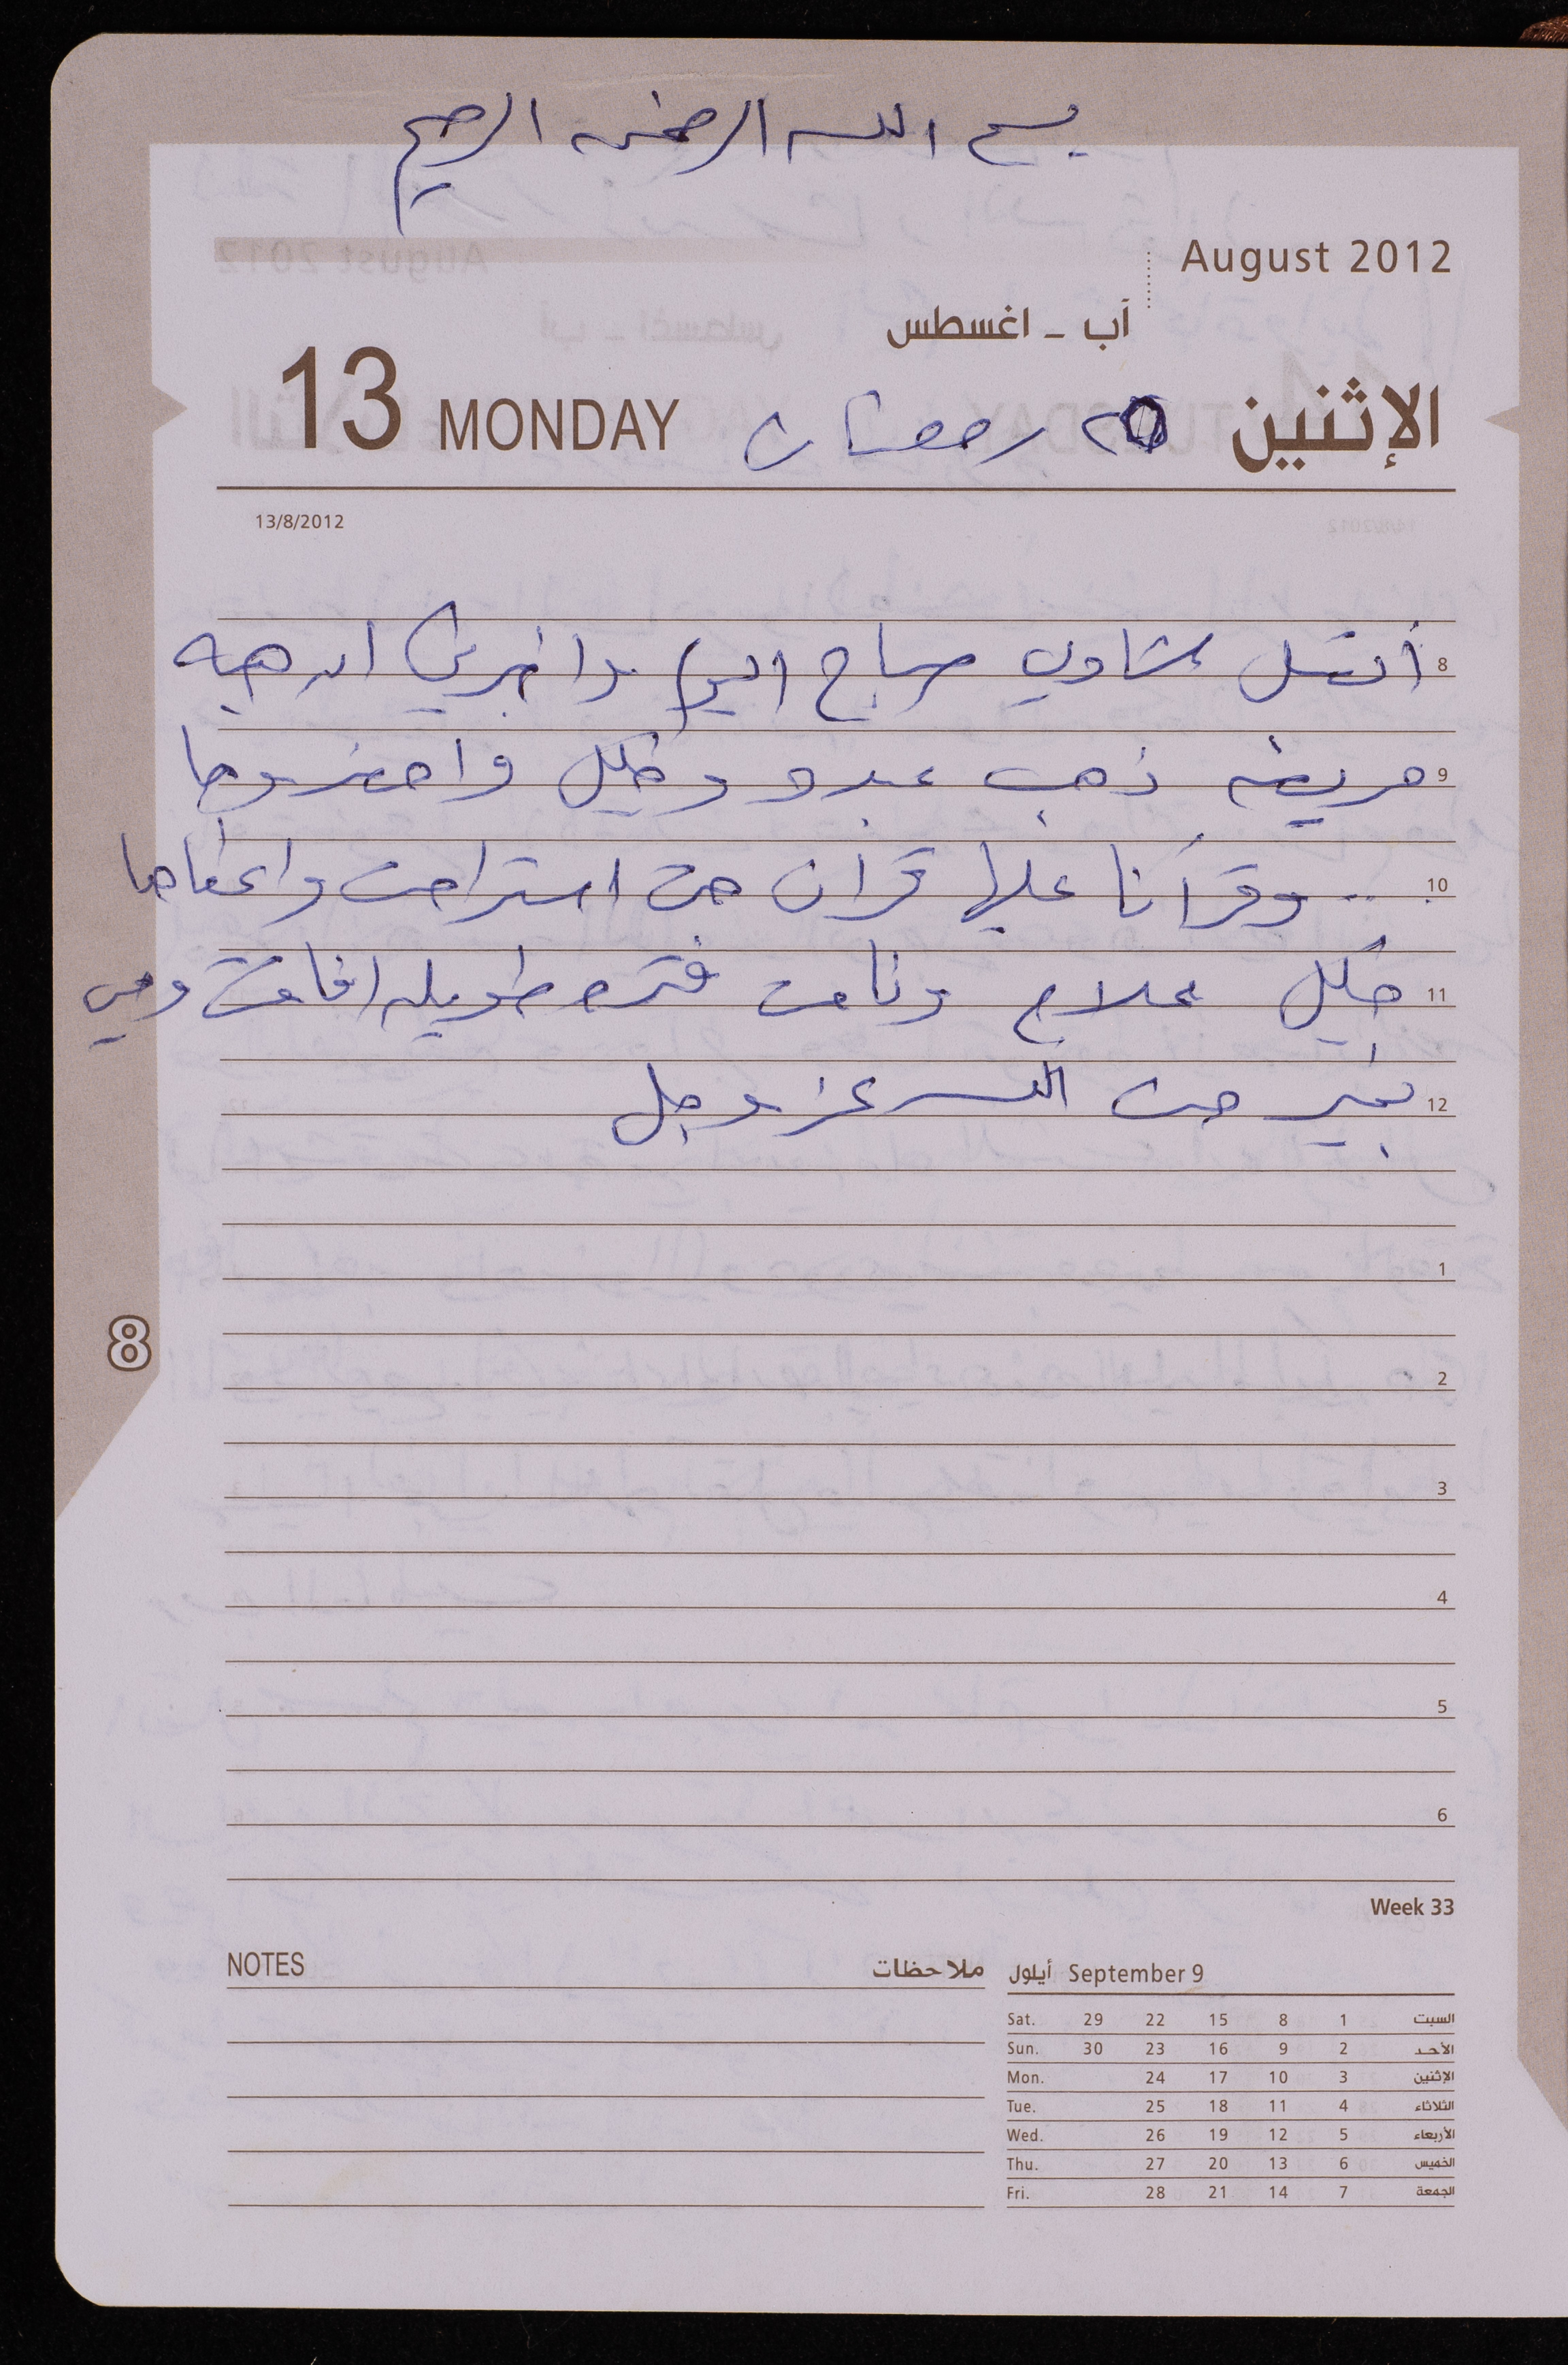 بسم الله الرحمن الرحيم
August 2012
آب - اغسطس
13 MONDAY ٢٥ رمضان الإثنين
13/8/2012
8 أتصل شاوي صباح اليوم واخبرني ان هبه
9 مريضه ذهب عبدو وخليل واحضروها
10 .. وقرأنا عليها قران حتى استراحت واعطاها
11 خليل علاج ونامت فتره طويله افاقت وهي
12 بخير من الله عز وجل
1
2
8
3
4
5
6
Week 33
NOTES ملاحظات
أيلول September 9
Sat. 29 22 15 8 1 السبت
Sun. 30 23 16 9 2 الأحد
Mon. 24 17 10 3 الإثنين
Tue. 25 18 11 4 الثلاثاء
Wed. 26 19 12 5 الأربعاء
Thu. 27 20 13 6 الخميس
Fri. 28 21 14 7 الجمعة